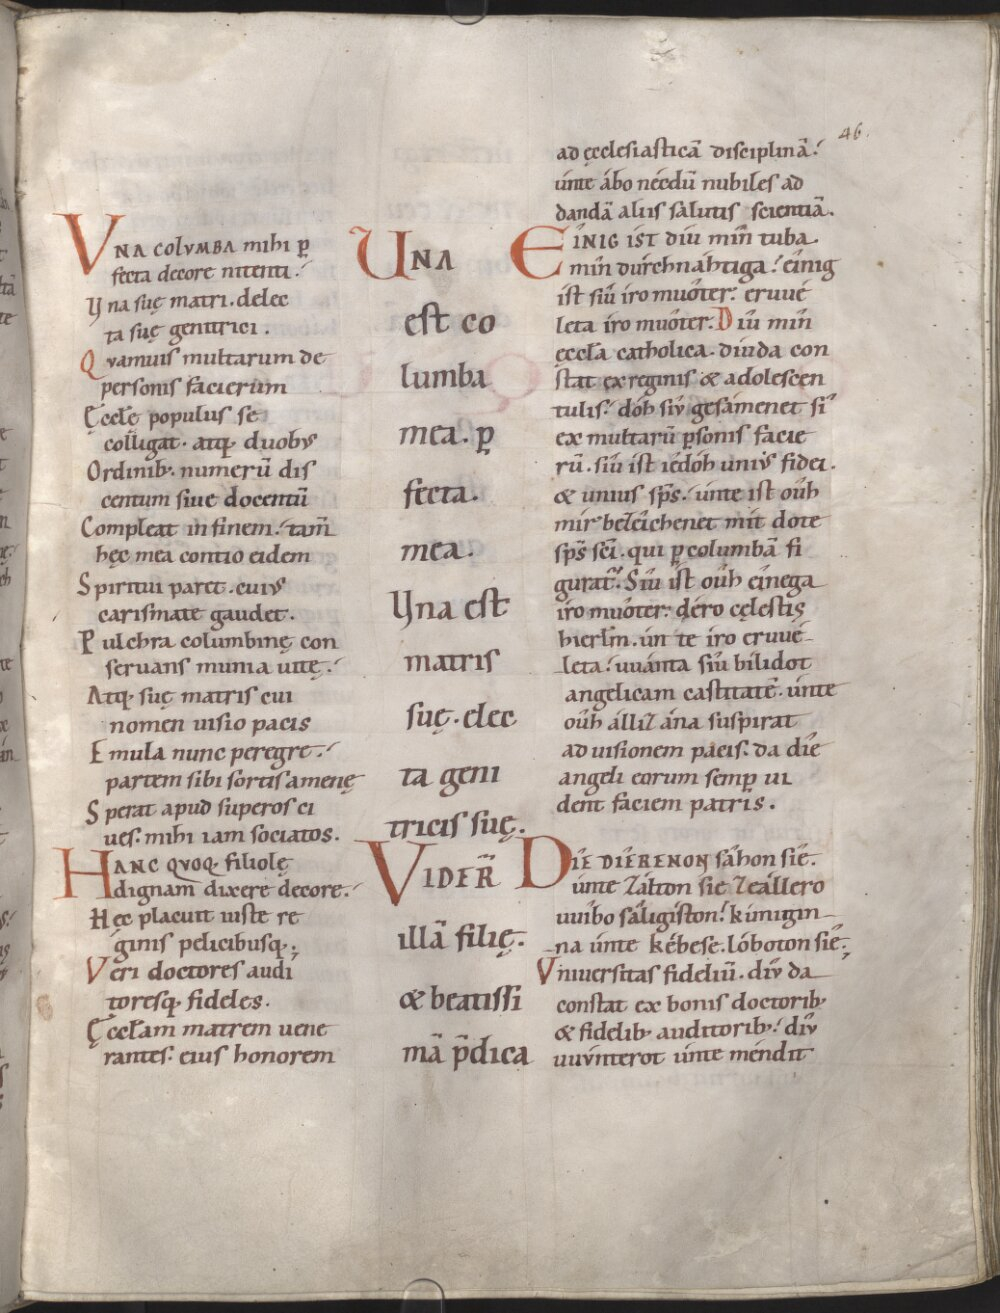 46.
VNA COLVMBA mihi p̄
fecta decore nitenti.
Vna suę matri. delec
ta suę genitrici.
Qvamuis multarum de
personis facierum
Ęcclę populus se
colligat. atq; duobus
Ordinib; numerū dis
centum siue docentū
Compleat in finem. tam̄
hęc mea contio eidem
Spiritui paret. cuius
carismate gaudet.
Pulchra columbinę con
seruans munia uitę.
Atq; suę matris cui
nomen uisio pacis
Emula nunc peregre.
partem sibi sortis amenę
Sperat apud superos ci
ues. mihi iam sociatos.
HANC QVOQ; filiolę
dignam dixere decore.
Hęc placuit iuste re
ginis pelicibusq;.
Veri doctores audi
toresq; fideles.
Ęccłam matrem uene
rantes. eius honorem
UNA
est co
lumba
mea. p̄
fecta.
mea.
Vna est
matris
suę. elec
ta geni
tricis suę.
VIDER̄
illā filię.
& beatissi
mā p̄dica
ad ęcclesiasticā disciplinā.
únte ábo necdū nubiles ad
dandā aliis salutis scientiā.
EÍNIG IST DIV mîn tuba
mîn dúrchnáhtiga. eînig
ist siû iro muôter. eruvé
leta íro muôter. Diû mîn
ęccła catholica. diuda con
stat ex reginis & adolescen
tulis. dóh siv gesámenet sî
ex multarū p̄sonis facie
rū. siû ist iêdóh univs fidei.
& unius sp̄s. únte ist oûh
mir beƚeîchenet mit dote
sp̄s sc̄i. qui p̄ columbā fi
gurat̄. Siû ist oûh eînega
iro muôter. déro cęlestis
hierłm. únte íro eruvé
leta. uuánta siû bílidot
angelicam castitatē. únte
oûh állƶ ána suspirat
ad uisionem pacis. da díe
angeli eorum semp̄ ui
dent faciem patris.
DÍE DIÊRENON sâhon siê.
únte ƶálton sie ƶeállero
uuîbo sâligiston. kúnigin
na únte kébese. lóboton siê;
Vniuersitas fideliū. dív da
constat ex bonis doctorib;
& fidelib; auditorib;. dív
uuv́nterot únte méndit